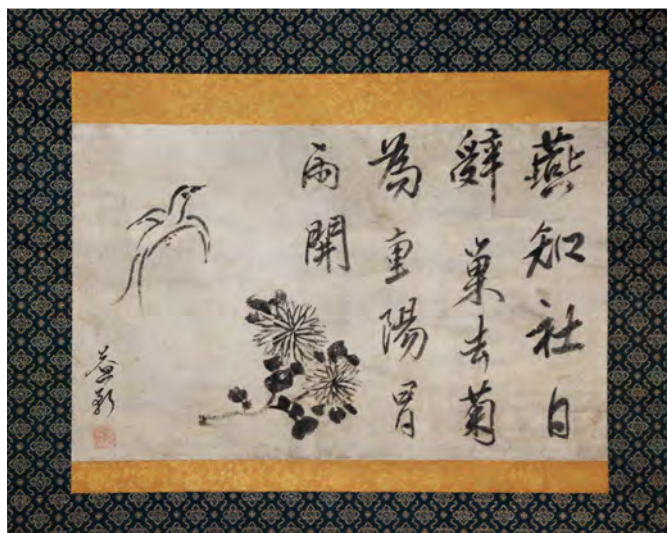 燕知社日
辭巢去菊
為重陽冒
雨開